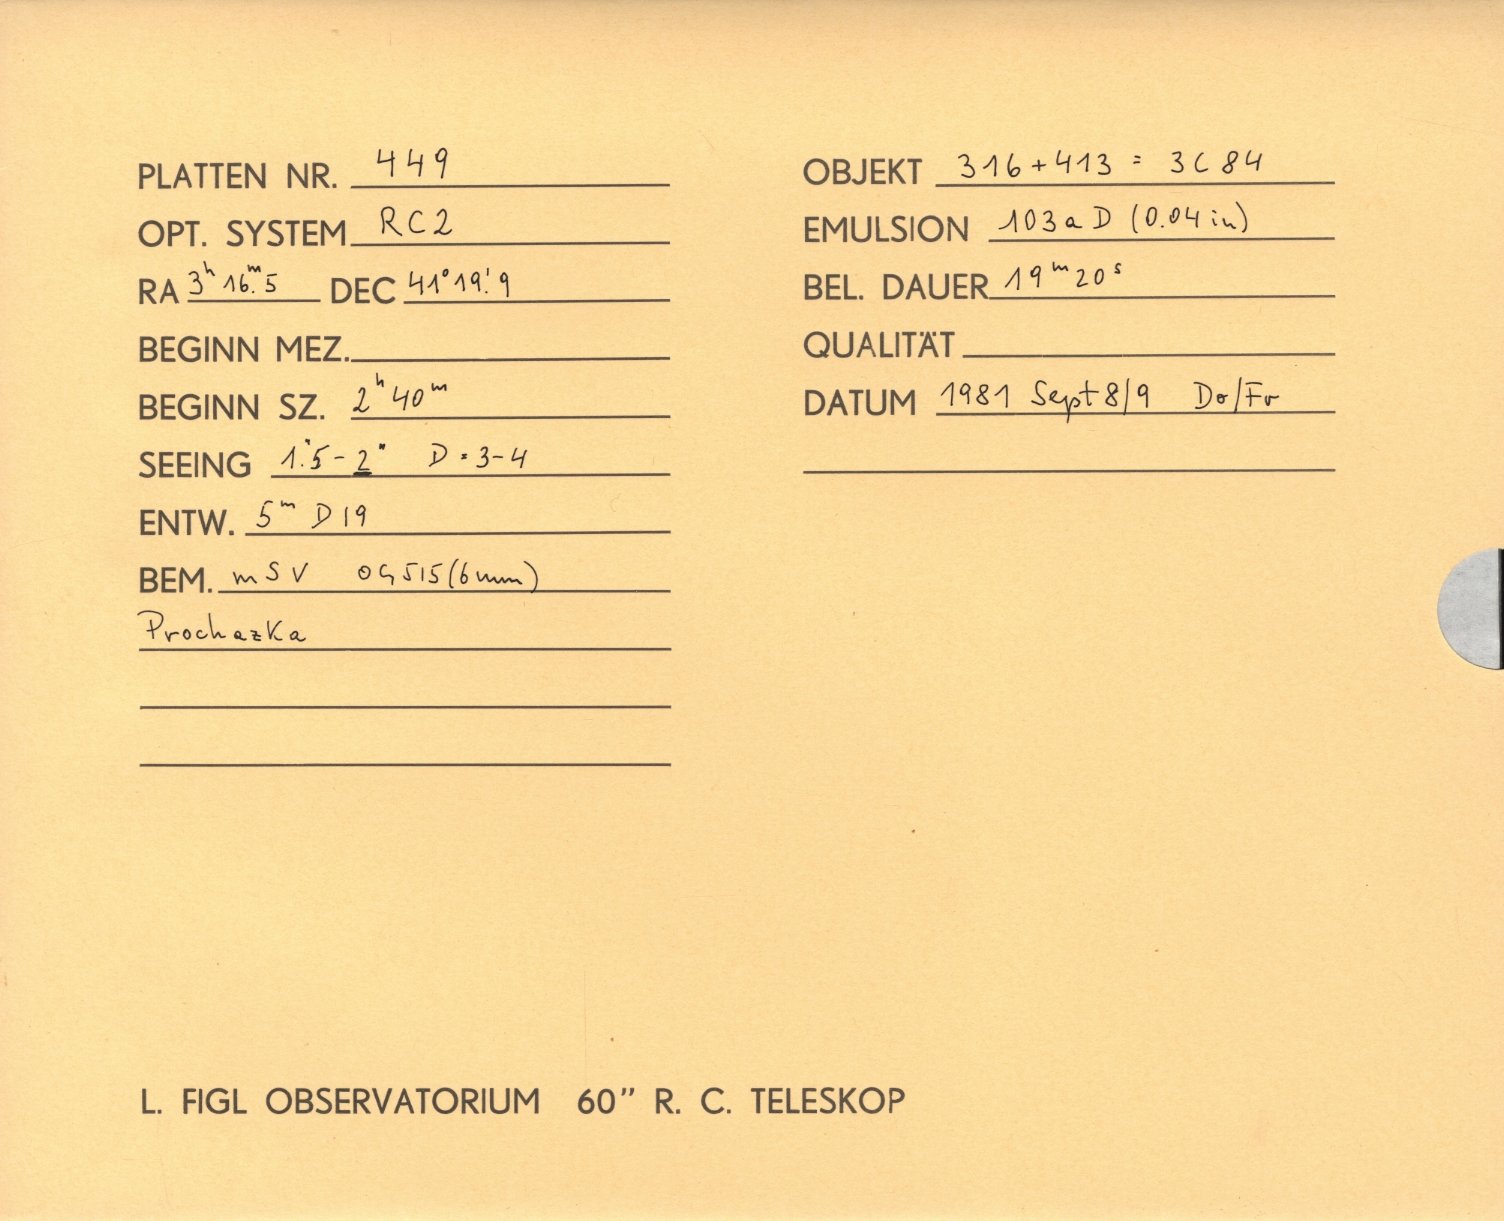 PLATTEN NR. 449
OPT. SYSTEM RC2
RA 3ʰ16ᵐ.5 DEC 41°19'.9
BEGINN MEZ.
BEGINN SZ. 2ʰ40ᵐ
SEEING 1".5-2" D = 3-4
ENTW. 5ᵐ D19
BEM. mSV OG515(6mm)
Prochazka
OBJEKT 316+413 = 3C84
EMULSION 103aD (0.04 in)
BEL. DAUER 19ᵐ20ˢ
QUALITÄT
DATUM 1981 Sept 8/9 Do/Fr
L. FIGL OBSERVATORIUM 60" R. C. TELESKOP